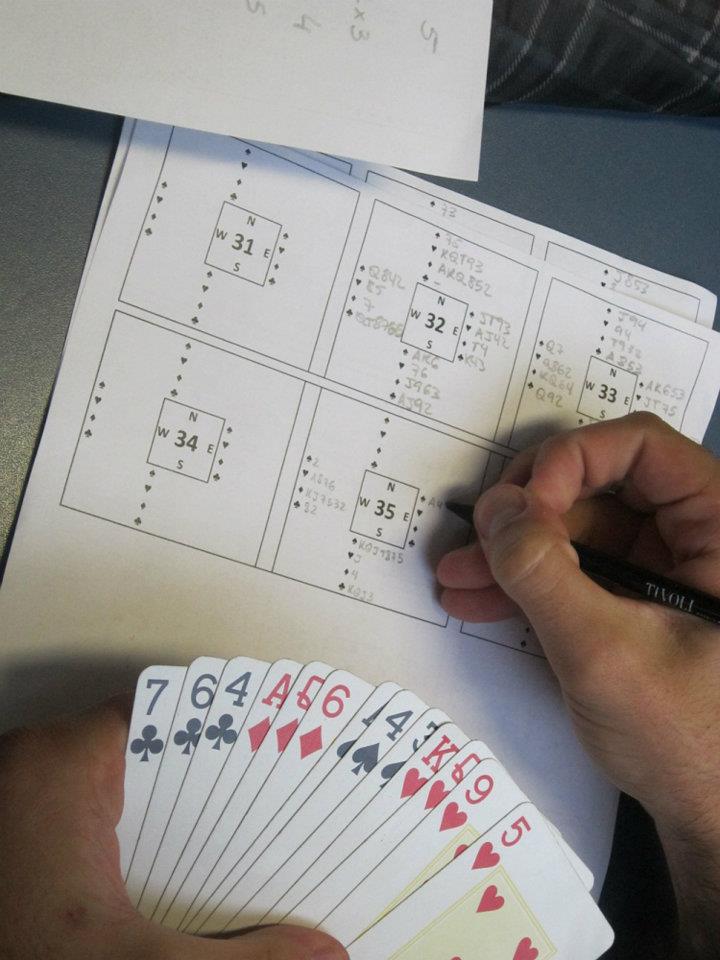 5
x3
4
5
73
J853
N
W 31 E
S
75
KQT93
AKQ852
-
Q842
85
7
QJ8765
N
W 32 E
S
JT93
AJ42
T4
K43
AK6
76
J963
AJ92
J94
A4
T982
A853
Q7
Q862
KQ64
Q92
N
W 33 E
S
AK653
JT75
N
W 34 E
S
2
A876
KJ7532
82
N
W 35 E
S
A4
KQJ9875
J
4
KQJ3
TIVOLI
7
6
4
A
6
4
J
K
9
5